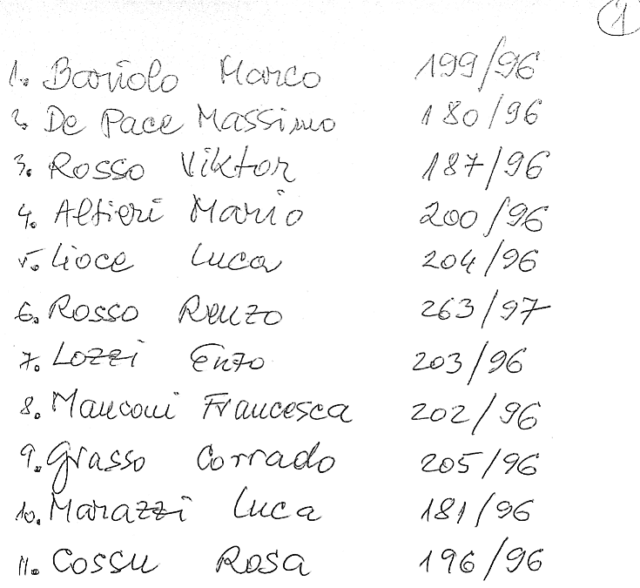 1
1. Bariolo Marco 199/96
2. De Pace Massimo 180/96
3. Rosso Viktor 187/96
4. Altieri Mario 200/96
5. Lioce Luca 204/96
6. Rosso Renzo 263/97
7. Lozzi Enzo 203/96
8. Manconi Francesca 202/96
9. Grasso Corrado 205/96
10. Marazzi Luca 181/96
11. Cossu Rosa 196/96